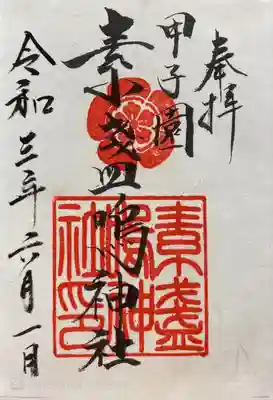 奉拝
甲子園
素盞嗚神社
令和三年六月一日
素盞
嗚神
社印